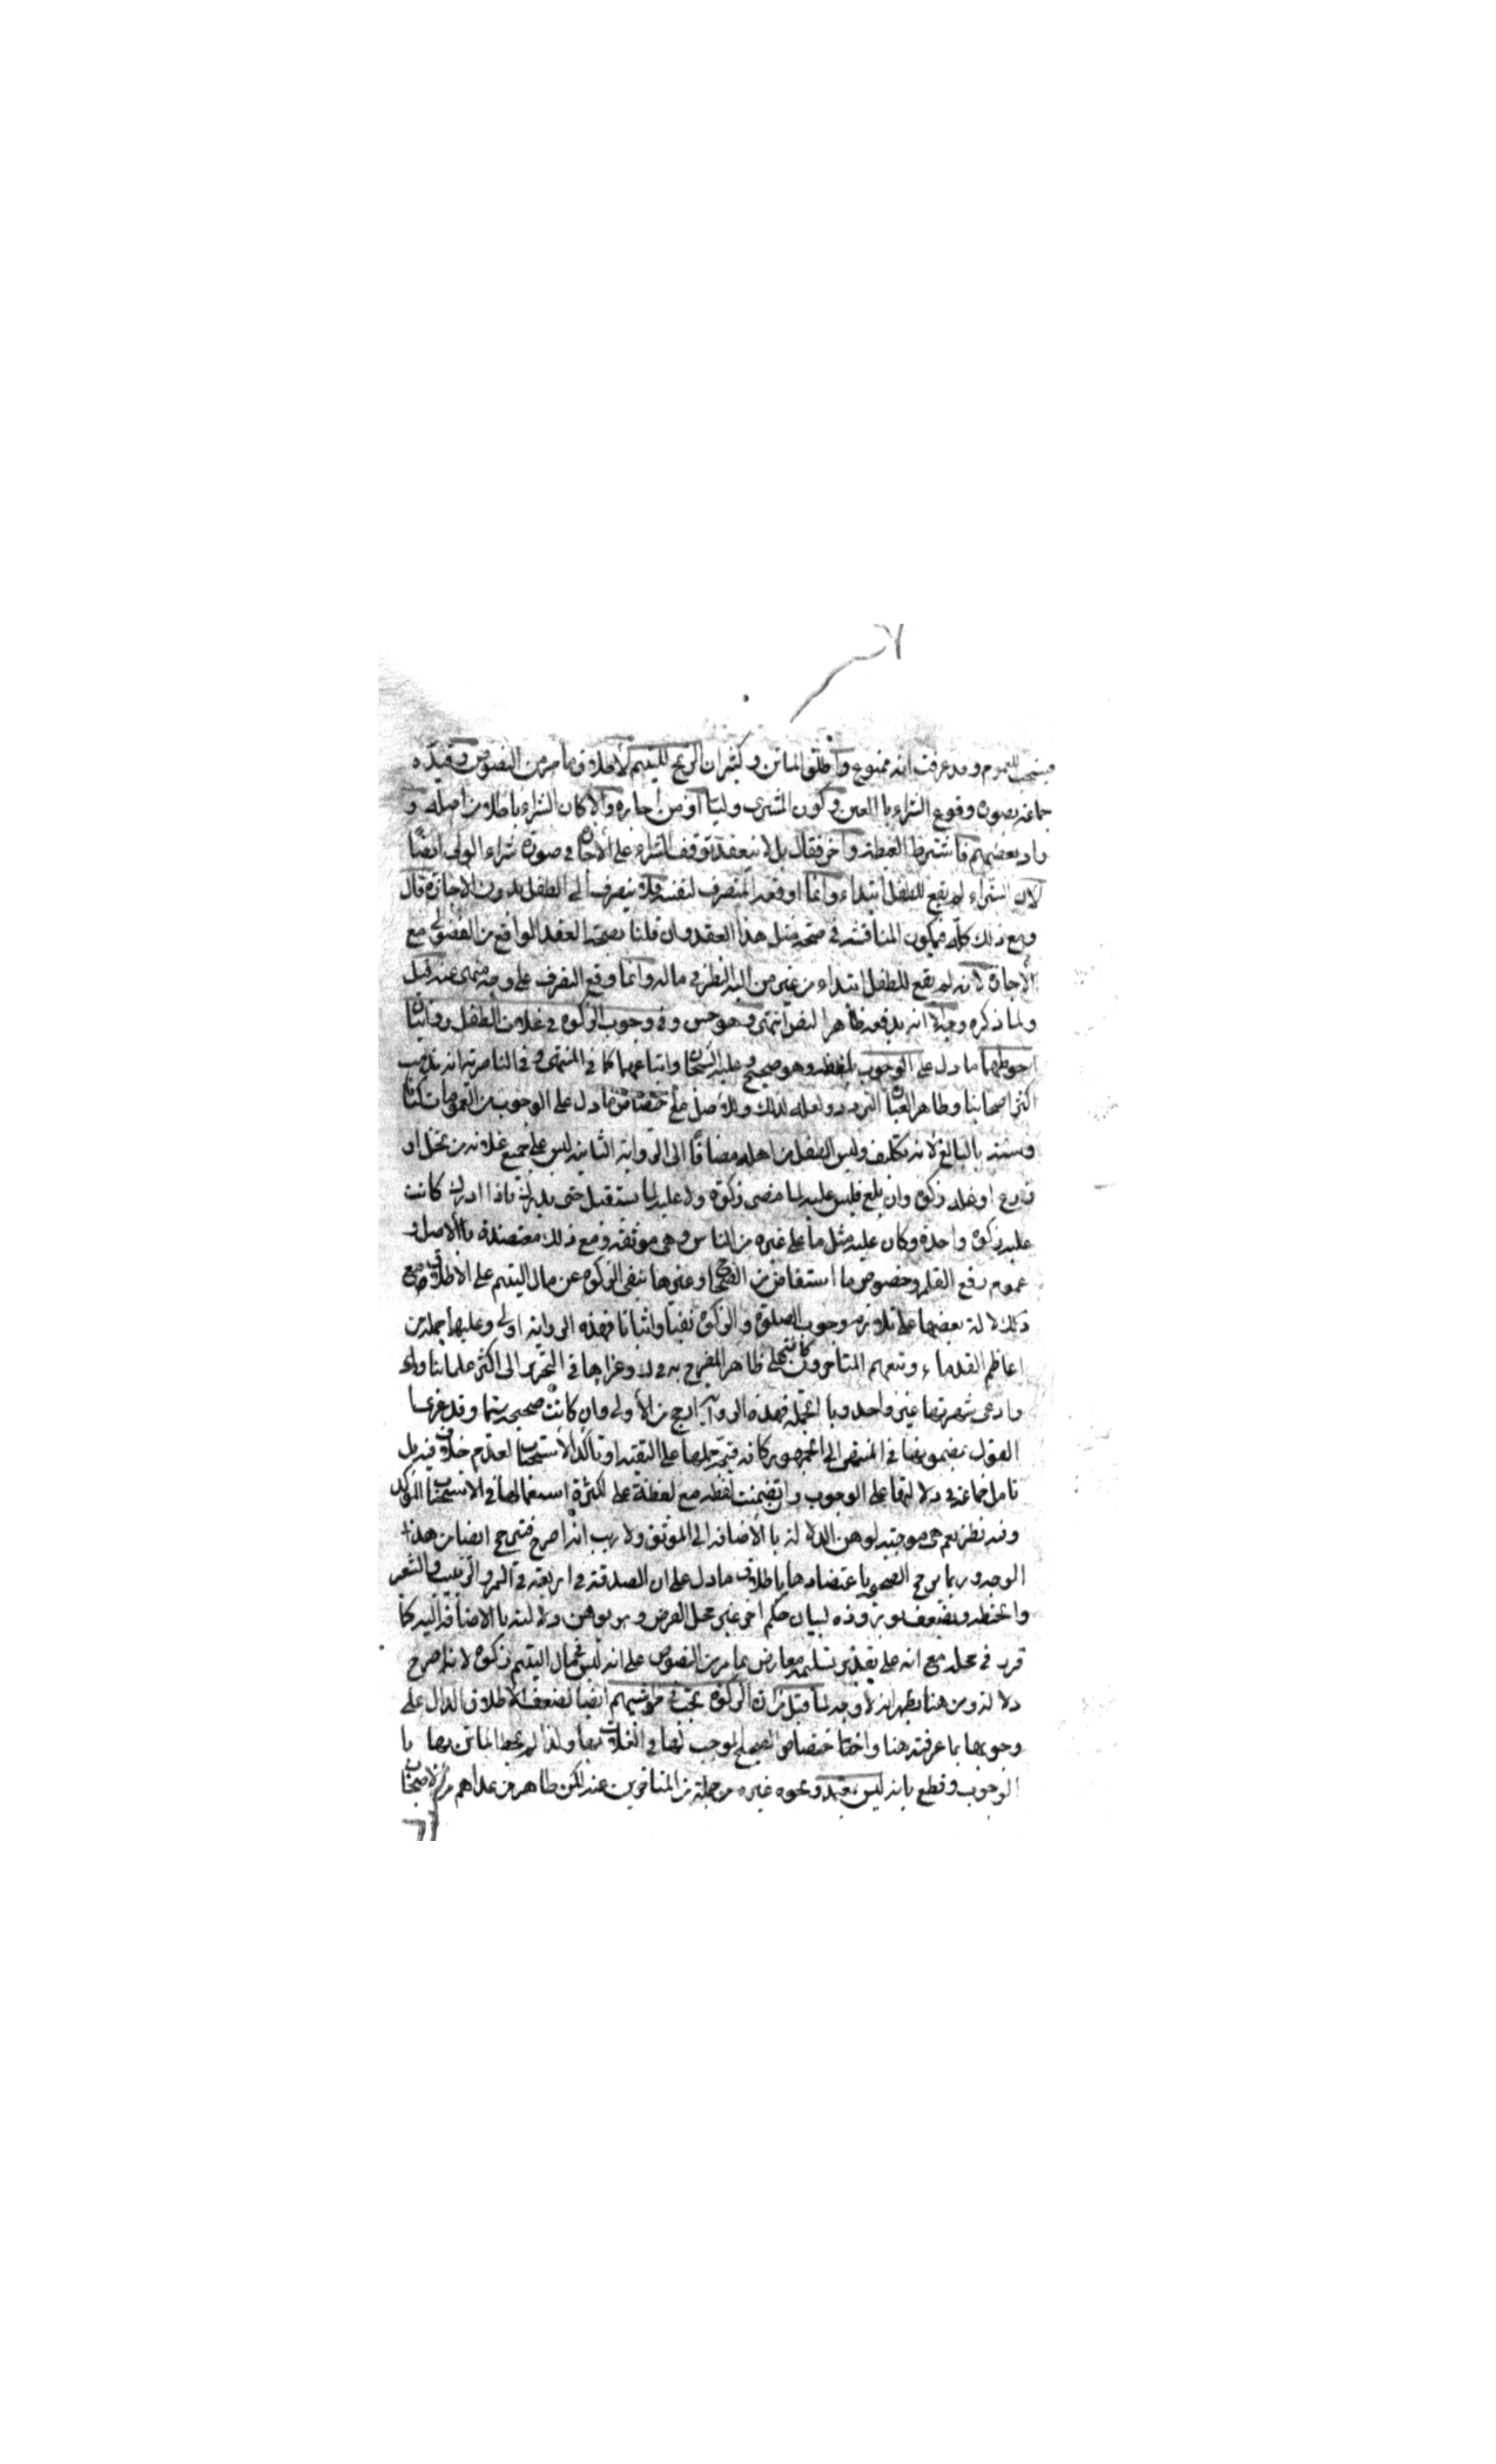 فيستحب للعموم وقد عرفت انه ممنوع واطلق الماتن وكثير ان الربح لليتيم لاطلاق ما مر من النصوص وقيده
جماعة بصورة وقوع الشراء بالعين وكون المشتري وليا او من اجازه والا كان الشراء باطلا من اصله و
زاد بعضهم فاشترط الغبطة واخر فقال بل لا ينعقد توقف الشراء على الاجازة في صورة شراء الولي ايضا
لان الشراء لم يقع للطفل ابتداء وانما اوقعه المتصرف لنفسه فلا ينصرف الى الطفل بدون الاجازة قال
ومع ذلك كله فيمكن المناقشة في صحة مثل هذا العقد وان قلنا بصحة العقد الواقع من الفضولي مع
الاجازة لانه لم يقع للطفل ابتداء من غير من اليه النظر في ماله وانما وقع التصرف على وجه منهي عنه قيل
ولما ذكره وجه الا انه يدفعه ظاهر النص انتهى وهو حسن وفي وجوب الزكوة في غلات الطفل روايتان
احوطهما ما دل على الوجوب بلفظه وهو صحيح وعليه الشيخان واتباعهما كما في المنتهى وفي الناصرية انه مذهب
اكثر اصحابنا وظاهر العبارة التردد ولعله لذلك وللاصل مع اختصاص ما دل على الوجوب من العمومات كتابا
وسنة بالبالغ لانه تكليف وليس الطفل من اهله مضافا الى الرواية الثانية ليس على جميع غلاته من نخل او
زرع او غلة زكوة وان بلغ فليس عليه لما مضى زكوة ولا عليه لما يستقبل حتى يدرك فاذا ادرك كانت
عليه زكوة واحدة وكان عليه مثل ما على غيره من الناس وهي موثقة ومع ذلك معتضدة بالاصل و
عموم رفع القلم وخصوص ما استفاض من الصحاح وغيرها بنفي الزكوة عن مال اليتيم على الاطلاق مع
ذلك دلالة بعضها على تلازم وجوب الصلوة والزكوة نفيا واثباتا فهذه الرواية اولى وعليها جملة من
اعاظم القدماء وتبعهم المتاخرون كافة على ظاهر المصرح به وعزاها في التحرير الى اكثر علمائنا
وادعى شهرتها غير واحد وبالجملة فهذه الرواية ارجح من الاولى وان كانت صحيحة سيما وقد عزى
القول بمضمونها في المنتهى الى الجمهور كافة فيتجه حملها على التقية او تاكد الاستحباب لعدم خلاف فيه بل
تامل جماعة في دلالتها على الوجوب وان تضمنت لفظه مع لفظة على لكثرة استعمالها في الاستحباب المؤكد
وفيه نظر نعم هي موجبة لوهن الدلالة بالاضافة الى الموثق ولا ريب انه اصرح فترجح ايضا من هذا
الوجه وربما يرجح الصحيح باعتضادها باطلاق ما دل على ان الصدقة في اربعة في التمر والزبيب والشعير
والحنطة ويضعف بوروده لبيان حكم اخر غير محل الفرض وهو يوهن دلالته بالاضافة اليه كما
قرر في محله مع انه على تقدير تسليمه معارض بما مر من النصوص على انه ليس في مال اليتيم زكوة لانه اصرح
دلالة ومن هنا يظهر انه لا وجه لما قيل من ان الزكوة تجب في مواشيهم ايضا لضعف الاطلاق الدال على
وجوبها بما عرفته هنا واختصاص الصحيح الموجب لها في الغلات بها ولذا لم يحط الماتن بها با
الوجوب وقطع بانه ليس بمعتمد ونحوه غيره من جملة من المتاخرين عنه لكن ظاهر من عداهم من الاصحاب